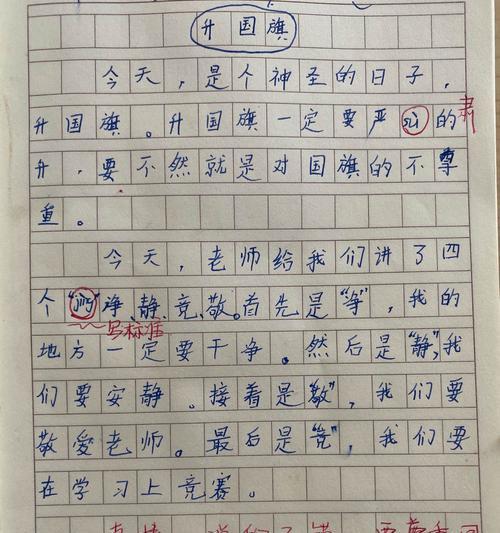 升国旗
今天，是个神圣的日子，
升国旗。升国旗一定要严的肃
升，要不然就是对国旗的不尊
重。
今天，老师给我们讲了四
个“净、静、竞、敬。首先是“净”，我的
写标准
地方一定要干净。然后是“静”，我
们要安静。接着是“敬”，我们要
敬爱老师。最后是“竞”，我们要
在学习上竞赛。